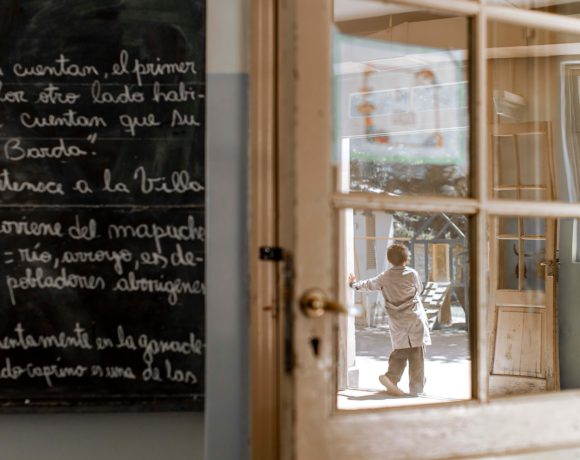 cuentan, el primer
or otro lado habi-
cuentan que su
Barda".
tenece a la Villa
oviene del mapuche
= río, arroyo, es de-
pobladores aborígenes
entamente en la ganade-
do caprino es una de las